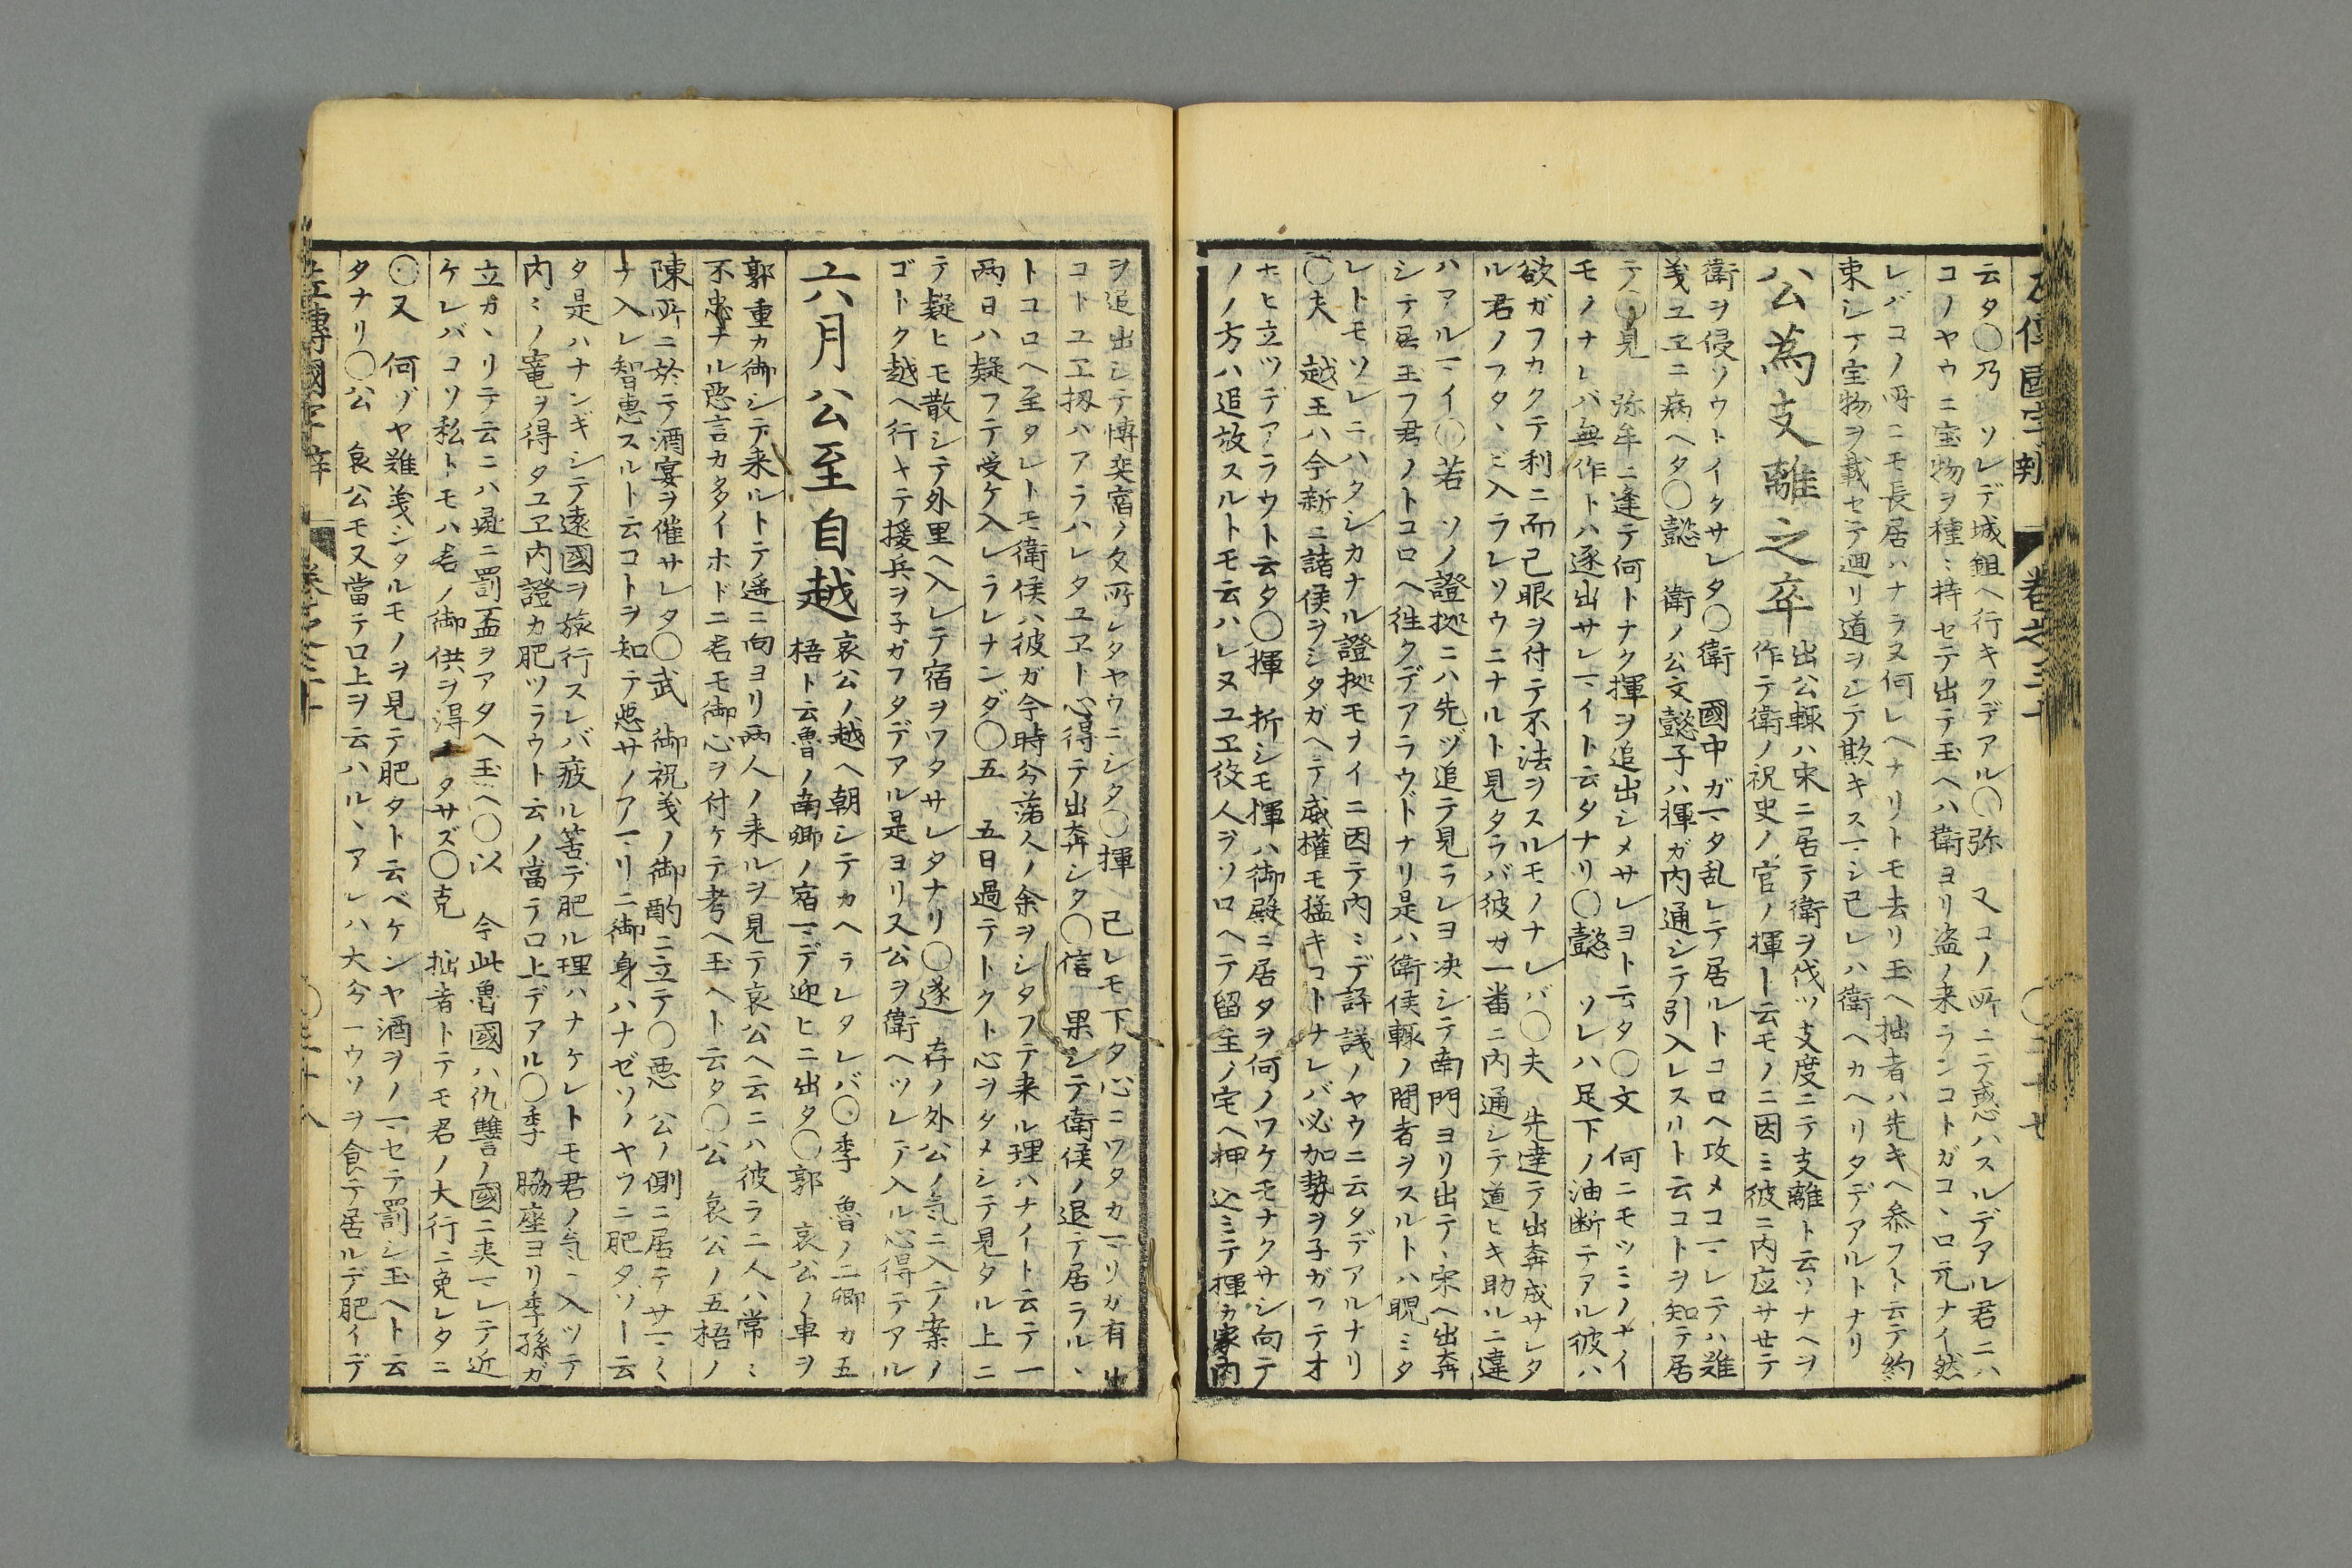 左傳國字辨 卷之三十 〇三十七
云タ〇乃 ソレデ城鉏ヘ行キクデアル〇弥 又コノ所ニテ惑ハスルデアル君ニハ
コノヤウニ宝物ヲ種ミ持セテ出テ玉ヘハ衛ヨリ盗ノ来ランコトガコヽロ元ナイ然
レバコノ所ニモ長居ハナラヌ何レヘナリトモ去リ玉ヘ拙者ハ先キヘ参フト云テ約
束シテ宝物ヲ載セテ廻リ道ヲシテ欺キスマシ已レハ衛ヘカヘリタデアルトナリ
公為支離之卒
出公輒ハ宋ニ居テ衛ヲ伐ツ支度ニテ支離ト云ソナヘヲ
作テ衛ノ祝史ノ官ノ揮ト云モノニ因ミ彼ニ内応サセテ
衛ヲ侵ソウトイタサレタ〇衛 國中ガマタ乱レテ居ルトコロヘ攻メコマレテハ難
義ユヱニ病ヘタ〇懿 衛ノ公文懿子ハ揮ガ内通シテ引入レスルト云コトヲ知テ居
テ〇見 弥牟ニ逢テ何トナク揮ヲ追出シメサレヨト云タ〇文 何ニモツミノナイ
モノナレバ無作トハ逐出サレマイト云タナリ〇懿 ソレハ足下ノ油断テアル彼ハ
欲ガフカクテ利ニ而已眼ヲ付テ不法ヲスルモノナレバ〇夫 先達テ出奔成サレタ
ル君ノフタヽビ入ラレソウニナルト見タラバ彼ガ一番ニ内通シテ道ヒキ助ルニ違
ハアルマイ〇若 ソノ證拠ニハ先ヅ追テ見ラレヨ决シテ南門ヨリ出テ宋ヘ出奔
シテ居玉フ君ノトコロヘ徃クデアラウドナリ是ハ衛侯輒ノ間者ヲスルトハ睨ミタ
レトモソレニハタシカナル證拠モヲイニ因テ内ミデ評議ノヤウニ云タデアルナリ
〇夫 越王ハ今新ニ諸侯ヲシタガヘテ威權モ猛キコトナレバ必加勢ヲ子ガフテオ
ナヒ立ツデアラウト云タ〇揮 折シモ揮ハ御殿ニ居タヲ何ノワケモナクサシ向テ
ノノ方ハ追放スルトモ云ハレヌユヱ役人ヲソロヘテ留主ノ宅ヘ押込ミテ揮カ家内
ヲ追出シテ慱奕宿ノ
コトユヱ扨ハアラハレタユヱト心得テ出奔シタ〇信 果シテ衛侯ノ退テ居ラルヽ
トコロヘ至タレトモ衛侯ハ彼ガ今時分落人ノ余ヲシタフテ来ル理ハナイト云テ一
両日ハ疑フテ受ケ入レラレナンダ〇五 五日過テトクト心ヲタメシテ見タル上ニ
テ疑ヒモ散シテ外里ヘ入レテ宿ヲワタサレタナリ〇遂 存ノ外公ノ気ニ入テ案ノ
ゴトク越ヘ行キテ援兵ヲ子ガフタデアル是ヨリ又公ヲ衛ヘツレテ入ル心得テアル
六月公至自越
哀公ノ越ヘ朝シテカヘラレタレバ〇季 魯ノ二卿カ五
梧ト云魯ノ南卿ノ宿マデ迎ヒニ出タ〇郭 哀公ノ車ヲ
郭重カ御シテ来ルトテ遥ニ向ヨリ両人ノ来ルヲ見テ哀公ヘ云ニハ彼ラ二人ハ常ミ
不忠ナル悪言カ多イホドニ君モ御心ヲ付ケテ考ヘ玉ヘト云タ〇公 哀公ノ五梧ノ
陳所ニ於テ酒宴ヲ催サレタ〇武 御祝義ノ御酌ニ立テ〇悪 公ノ側ニ居テサマ〱
ナ入レ智恵スルト云コトヲ知テ悪サノアマリニ御身ハナゼソノヤウニ肥タゾト云
タ是ハナンギシテ遠國ヲ旅行スレバ疲ル筈デ肥ル理ハナケレトモ君ノ気ニ入ツテ
内ミノ竃ヲ得タユヱ内證カ肥ツラウト云ノ當テ口上デアル〇季 脇座ヨリ季孫ガ
立ガヽリテ云ニハ彘ニ罰盃ヲアタヘ玉ヘ〇以 今此魯國ハ仇讐ノ國ニ夹マレテ近
ケレバコソ私トモハ君ノ御供ヲ得イタサズ〇克 拙者トテモ君ノ大行ニ免レタニ
〇又 何ゾヤ難義シタルモノヲ見テ肥タト云ベケンヤ酒ヲノマセテ罰シ玉ヘト云
タナリ〇公 哀公モ又當テ口上ヲ云ハルヽアレハ大分ウソヲ食テ居ルデ肥イデ
左傳國字辨 卷之三十 〇三十八